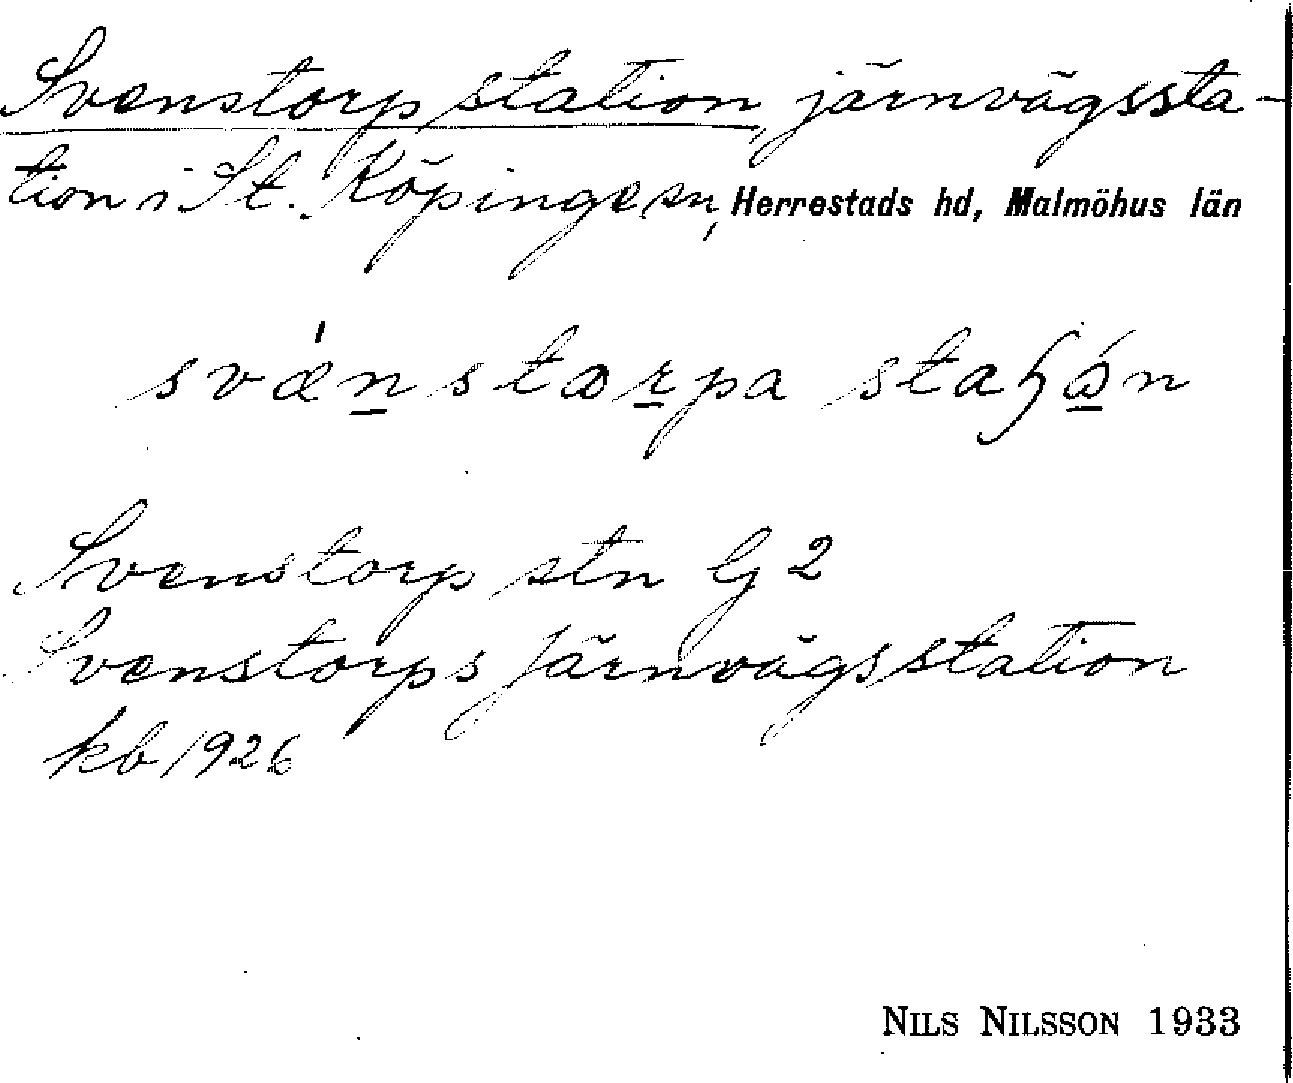 Svenstorp station, järnvägssta-
tion i St. Köpinge sn, Herrestads hd, Malmöhus län
svæ̀n̲stɑr̲pa staɧɑ̲́n
Svenstorp stn G 2
Svenstorps Järnvägsstation
kb 1926
NILS NILSSON 1933